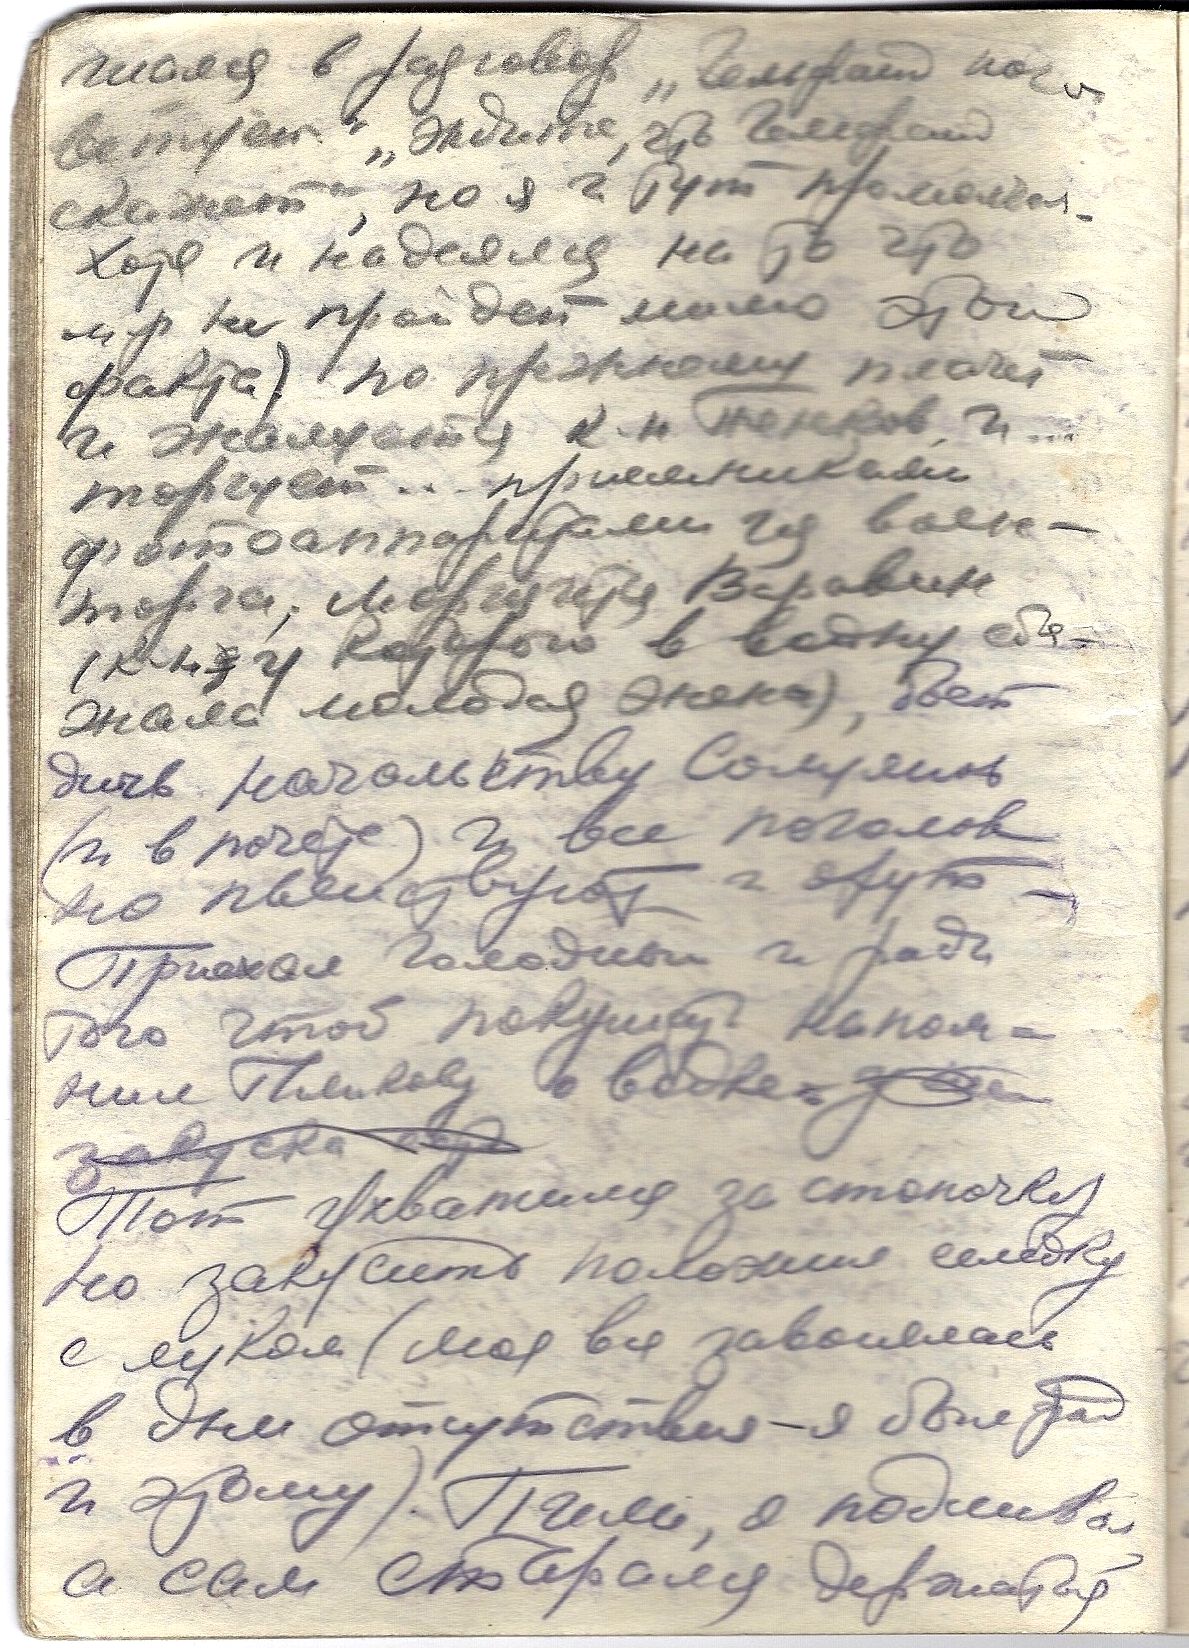 в разговор „Гельфанд по-
„ждите, что Гельфанд
скажет“, но я и тут промолчал.
Хотя и надеялся на то что
м-р не пройдет мимо этого
факта) по прежнему плачет
и жалуется к-н Тенков, и
торгует... приемниками
фотоаппаратами из воен-
торга, Варавин
(к-н у которого в войну сбе-
жала молодая жена),
начальству
(и в почете) и все поголов
но пьянствуют и
Приехал голодным и ради
того чтоб покушать напом-
нил о водке
закуска
Тот ухватился за стопочку
но закусить положил селедку
с луком (моя вся
в дни отсутствия - я был рад
и этому). Пили, я подливал
а сам старался держаться